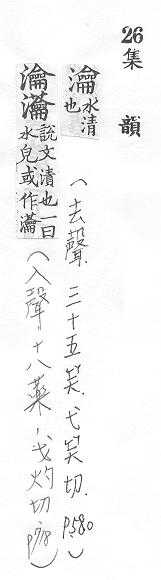 26集韻
瀹水清也（去聲.三十五笑.弋笑切.P.580）
瀹𤅢說文漬也一曰水皃或作𤅢（入聲十八藥，弋灼切.P.718）